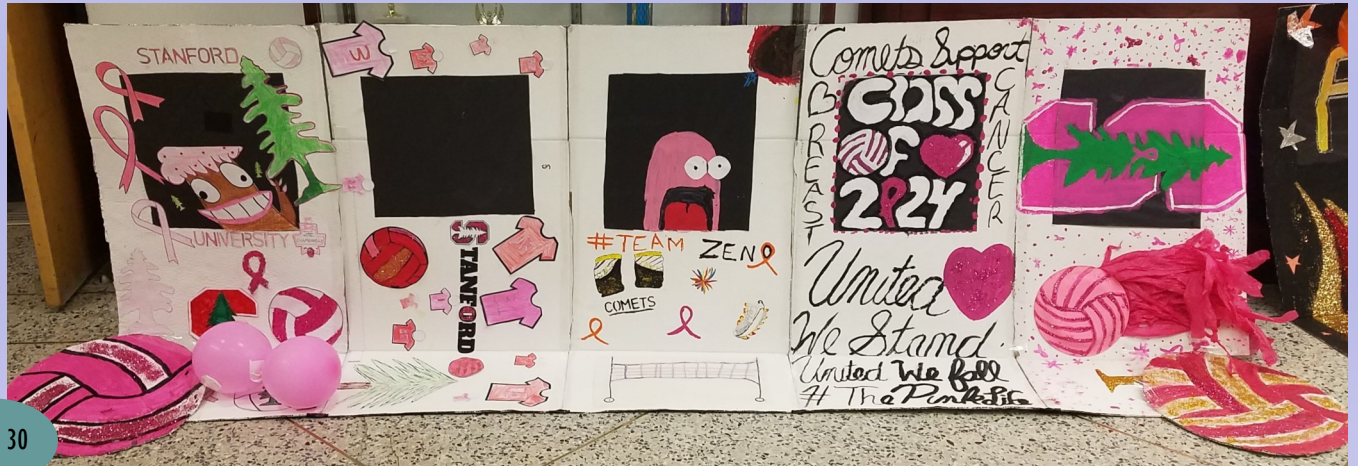 STANFORD
UNIVERSITY
W
STANFORD
#TEAM ZEN
COMETS
Comets Support
BREAST
CANCER
CLASS
OF
2024
United
We Stand.
United We fall
# The PinkLife
S
30